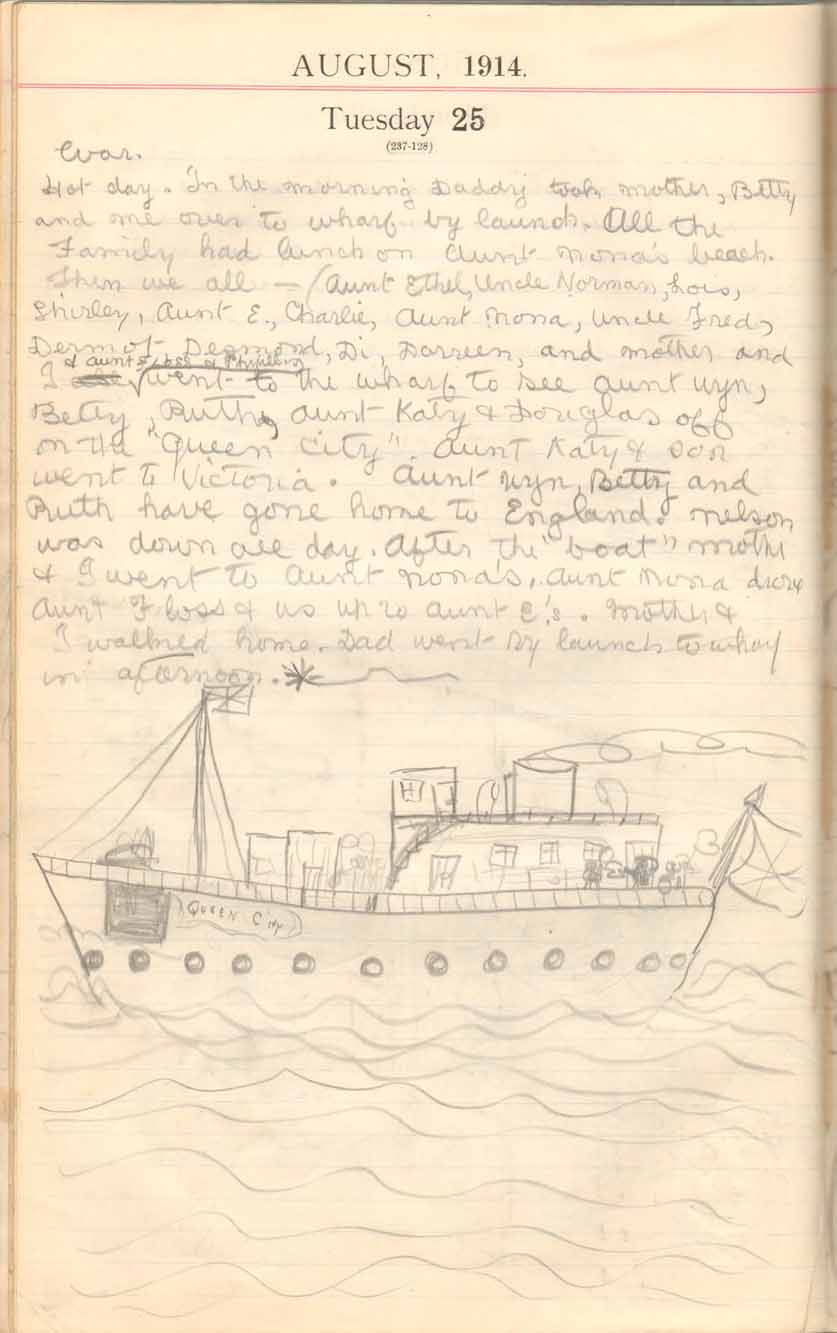 AUGUST, 1914.
Tuesday 25
(237-128)
War.
Hot day. In the morning Daddy took mother, Betty
and me over to wharf by launch. All the
Family had lunch on Aunt Mona's beach.
Then we all — (Aunt Ethel, Uncle Norman, Lois,
Shirley, Aunt E., Charlie, Aunt Mona, Uncle Fred,
Dermot Desmond, Di, Dorreen, and mother and
& aunt Floss & Phyllis
I went to the wharf to see aunt Wyn,
Betty, Ruth, aunt Katy & Douglas off
on the "Queen City". Aunt Katy & son
went to Victoria. Aunt Wyn, Betty and
Ruth have gone home to England. Nelson
was down all day. After the "boat" moth
& I went to Aunt Mona's. Aunt Mona drove
Aunt Floss & us up to Aunt E's. Mother &
I walked home. Dad went by launch to wharf
in afternoon.
QUEEN CITY